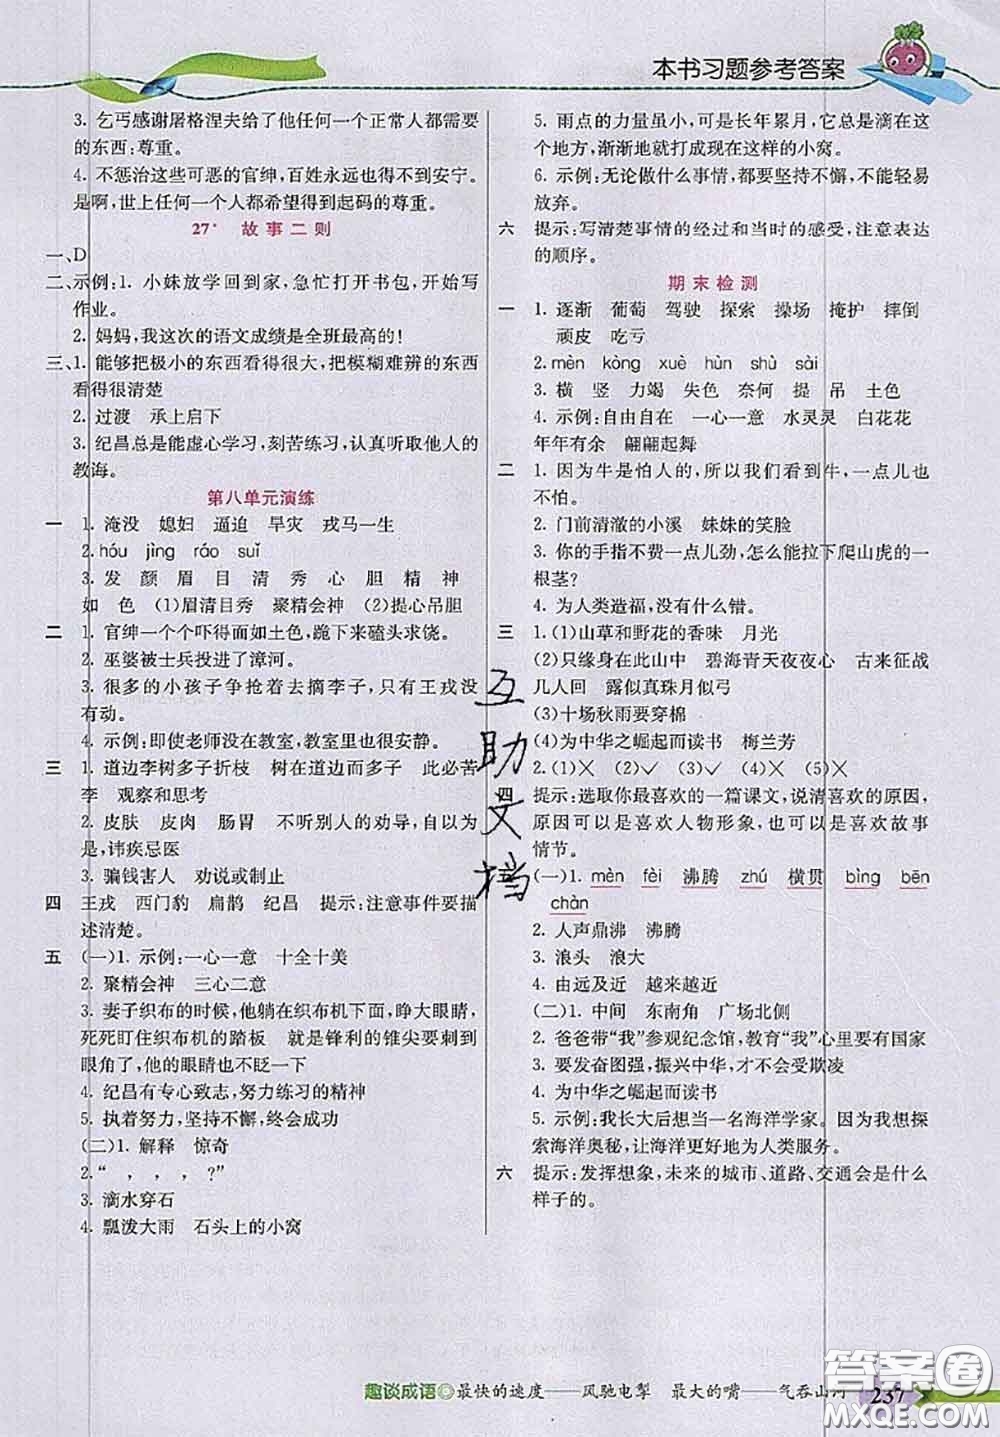 本书习题参考答案
3. 乞丐感谢屠格涅夫给了他任何一个正常人都需要
的东西:尊重。
4. 不惩治这些可恶的官绅，百姓永远也得不到安宁。
是啊，世上任何一个人都希望得到起码的尊重。
27* 故事二则
一、D
二、示例:1. 小妹放学回到家，急忙打开书包，开始写
作业。
2. 妈妈，我这次的语文成绩是全班最高的！
三、1. 能够把极小的东西看得很大，把模糊难辨的东西
看得很清楚
2. 过渡 承上启下
3. 纪昌总是能虚心学习，刻苦练习，认真听取他人的
教诲。
第八单元演练
一 1. 淹没 媳妇 逼迫 旱灾 戎马一生
2. hóu jìng ráo suǐ
3. 发 颜 眉 目 清 秀 心 胆 精 神
如 色 (1)眉清目秀 聚精会神 (2)提心吊胆
二 1. 官绅一个个吓得面如土色，跪下来磕头求饶。
2. 巫婆被士兵投进了漳河。
3. 很多的小孩子争抢着去摘李子，只有王戎没
有动。
4. 示例:即使老师没在教室，教室里也很安静。
三 1. 道边李树多子折枝 树在道边而多子 此必苦
李 观察和思考
2. 皮肤 皮肉 肠胃 不听别人的劝导，自以为
是，讳疾忌医
3. 骗钱害人 劝说或制止
四 王戎 西门豹 扁鹊 纪昌 提示:注意事件要描
述清楚。
五 (一)1. 示例:一心一意 十全十美
2. 聚精会神 三心二意
3. 妻子织布的时候，他躺在织布机下面，睁大眼睛，
死死盯住织布机的踏板 就是锋利的锥尖要刺到
眼角了，他的眼睛也不眨一下
4. 纪昌有专心致志，努力练习的精神
5. 执着努力，坚持不懈，终会成功
(二)1. 解释 惊奇
2. “ ， ， ， ?”
3. 滴水穿石
4. 瓢泼大雨 石头上的小窝
5. 雨点的力量虽小，可是长年累月，它总是滴在这
个地方，渐渐地就打成现在这样的小窝。
6. 示例:无论做什么事情，都要坚持不懈，不能轻易
放弃。
六 提示:写清楚事情的经过和当时的感受，注意表达
的顺序。
期末检测
一 1. 逐渐 葡萄 驾驶 探索 操场 掩护 摔倒
顽皮 吃亏
2. mèn kòng xuè hùn shù sài
3. 横 竖 力竭 失色 奈何 提 吊 土色
4. 示例:自由自在 一心一意 水灵灵 白花花
年年有余 翩翩起舞
二 1. 因为牛是怕人的，所以我们看到牛，一点儿也
不怕。
2. 门前清澈的小溪 妹妹的笑脸
3. 你的手指不费一点儿劲，怎么能拉下爬山虎的一
根茎？
4. 为人类造福，没有什么错。
三 1. (1)山草和野花的香味 月光
(2)只缘身在此山中 碧海青天夜夜心 古来征战
几人回 露似真珠月似弓
(3)十场秋雨要穿棉
(4)为中华之崛起而读书 梅兰芳
2. (1)× (2)√ (3)√ (4)× (5)×
四 提示:选取你最喜欢的一篇课文，说清喜欢的原因，
原因可以是喜欢人物形象，也可以是喜欢故事
情节。
(一)1. mèn fèi 沸腾 zhú 横贯 bìng bēn
chàn
2. 人声鼎沸 沸腾
3. 浪头 浪大
4. 由远及近 越来越近
(二)1. 中间 东南角 广场北侧
2. 爸爸带“我”参观纪念馆，教育“我”心里要有国家
3. 要发奋图强，振兴中华，才不会受欺凌
4. 为中华之崛起而读书
5. 示例:我长大后想当一名海洋学家。因为我想探
索海洋奥秘，让海洋更好地为人类服务。
六 提示:发挥想象，未来的城市、道路、交通会是什么
样子的。
互助文档
趣谈成语 最快的速度——风驰电掣 最大的嘴——气吞山河 237
答案圈
MXQE.COM